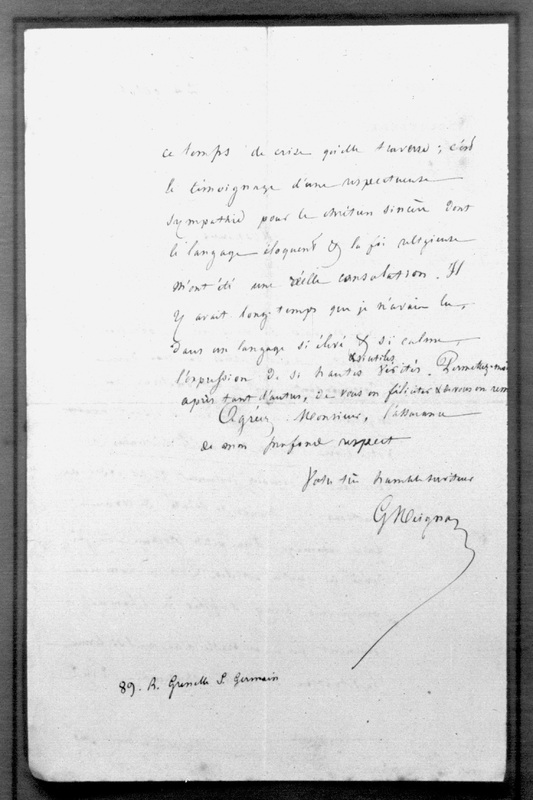 ce temps de crise qu'elle traverse ; c'est
le témoignage d'une respectueuse
sympathie pour le chrétien sincère dont
le langage éloquent & la foi religieuse
m'ont été une réelle consolation. Il
y avait long-temps que je n'avais lu,
dans un langage si élevé & si calme,
l'expression de si hautes & si utiles vérités. Permettez-moi
après tant d'autres, de vous en féliciter & de vous en rem
Agréez, Monsieur, l'assurance
de mon profond respect
Votre très humble serviteur
G Meignan
89. R. Grenelle S. Germain